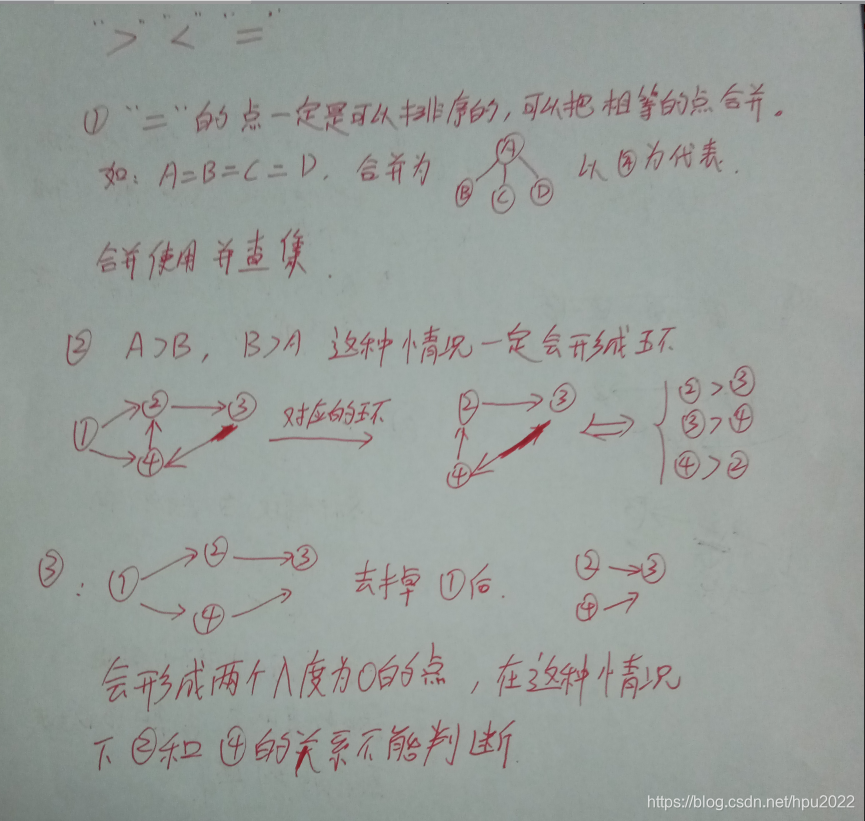 ">" "<" "="
① "="的点一定是可以排序的，可以把相等的点合并。
如：A=B=C=D，合并为 Ⓐ Ⓑ Ⓒ Ⓓ 以Ⓐ为代表.
合并使用并查集.
② A>B，B>A 这种情况一定会形成环
① ② ③ ④ 对应的环 ② ③ ④ ⇔ { ②>③
③>④
④>②
③： ① ② ③ ④ 去掉①后. ② → ③
④
会形成两个入度为0的点，在这种情况
下②和④的关系不能判断.
https://blog.csdn.net/hpu2022